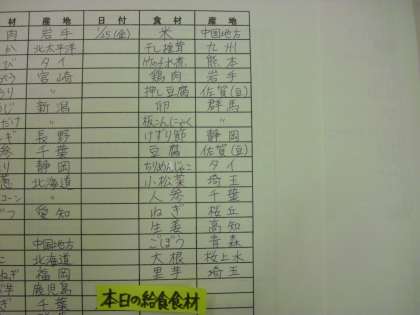 材 産地 日付 食材 産地
肉 岩手 1/15(金) 米 中国地方
か 北太平洋 干し椎茸 九州
び タイ 竹の子水煮 熊本
宮崎 鶏肉 岩手
〃 押し豆腐 佐賀(豆)
じ 新潟 卵 群馬
たけ 板こんにゃく 〃
ギ 長野 けずり節 静岡
参 千葉 豆腐 佐賀(豆)
り 静岡 ちりめんじゃこ タイ
葱 北海道 小松菜 埼玉
コーン 〃 人参 千葉
つ 愛知 ねぎ 桜丘
生姜 高知
中国地方 ごぼう 青森
北海道 大根 桜上水
ねぎ 福岡 里芋 埼玉
芋 鹿児島
ぎ 千葉
本日の給食食材